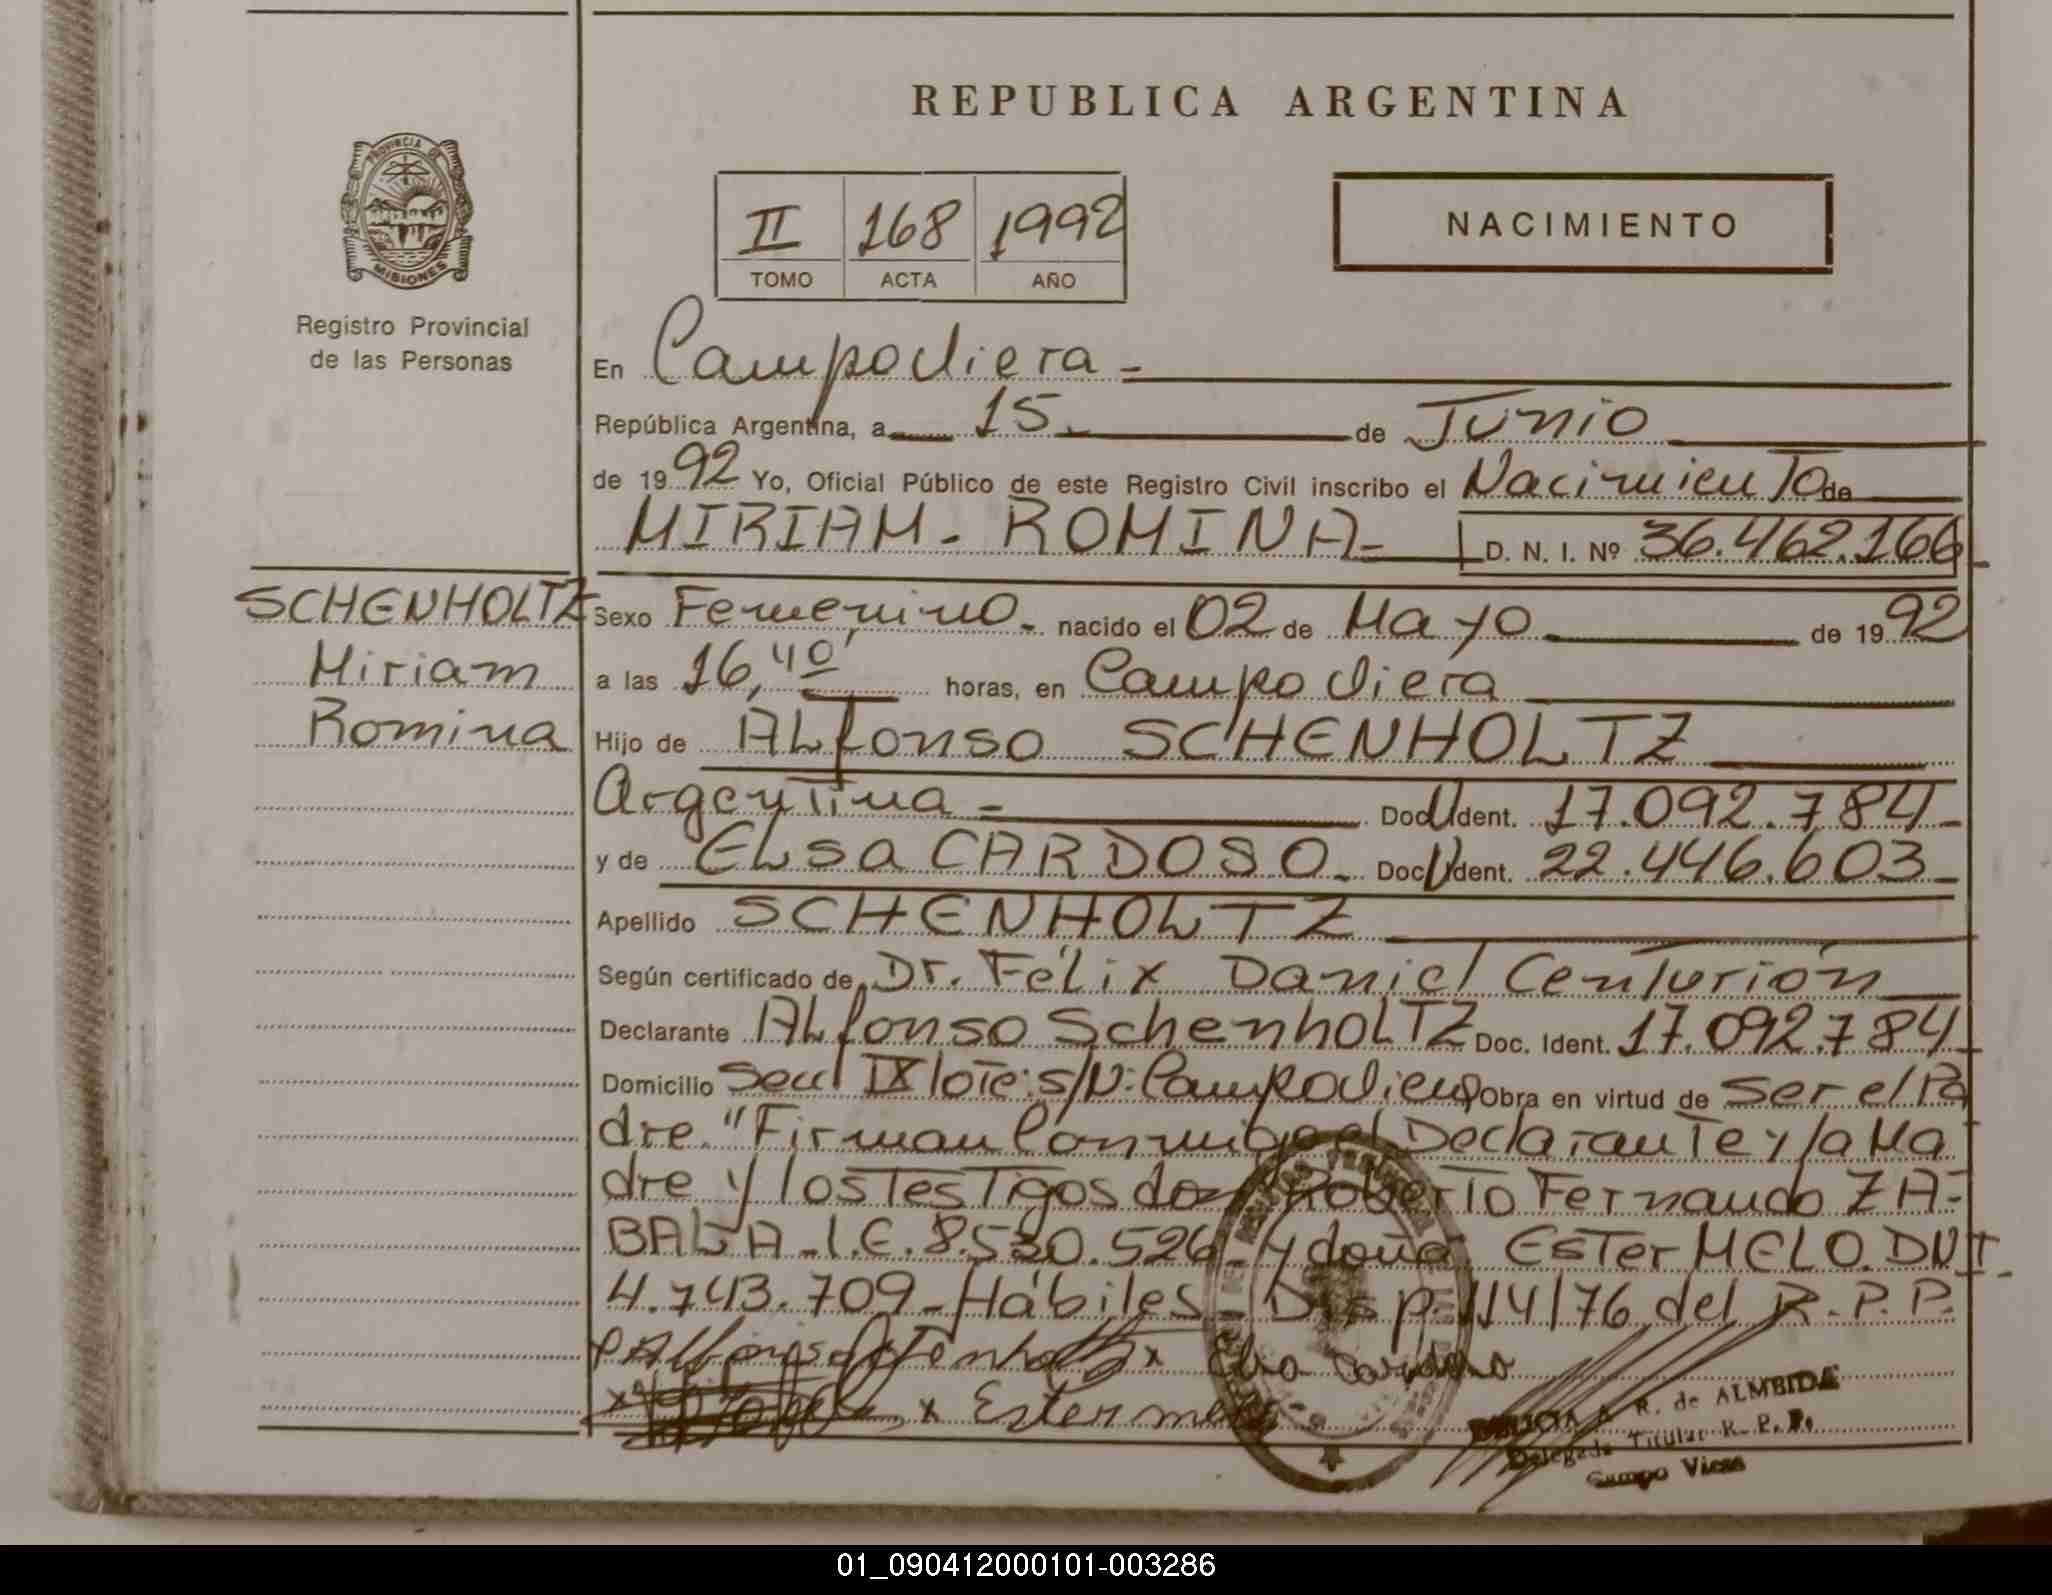 REPUBLICA ARGENTINA
PROVINCIA DE
MISIONES
Registro Provincial
de las Personas
II 168 1992
TOMO ACTA AÑO
NACIMIENTO
En Campo Viera -
República Argentina, a 15 de Junio
de 1992 Yo, Oficial Público de este Registro Civil inscribo el Nacimiento de
MIRIAM - ROMINA - D. N. I. Nº 36.462.166
SCHENHOLTZ
Miriam
Romina
Sexo Femenino - nacido el 02 de Mayo de 1992
a las 16,40 horas, en Campo Viera
Hijo de ALfonso SCHENHOLTZ
Argentina - Doc. Ident. 17.092.784 -
y de ELSA CARDOSO - Doc. Ident. 22.446.603 -
Apellido SCHENHOLTZ
Según certificado de Dr. Félix Daniel Centurión
Declarante ALfonso SchenhoLTZ Doc. Ident. 17.092.784 -
Domicilio IX lote: s/N: Campo Viera Obra en virtud de ser el Pa
dre. "Firman Conmigo el Declarante y la Ma
dre y los Testigos don Roberto Fernando ZA-
BALA - L.E. 8.530.526 y doña Ester MELO. DNI.
4.743.709 - Hábiles Disp. 114/76 del R.P.P.
x Elsa Cardoso
x Ester melo
R. de ALMEIDA
Delegada Titular R. P. P.
Campo Viera
01_090412000101-003286